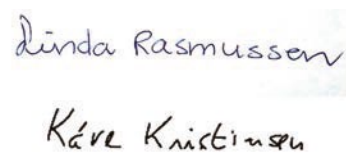 Linda Rasmussen
Káre Kristinsen